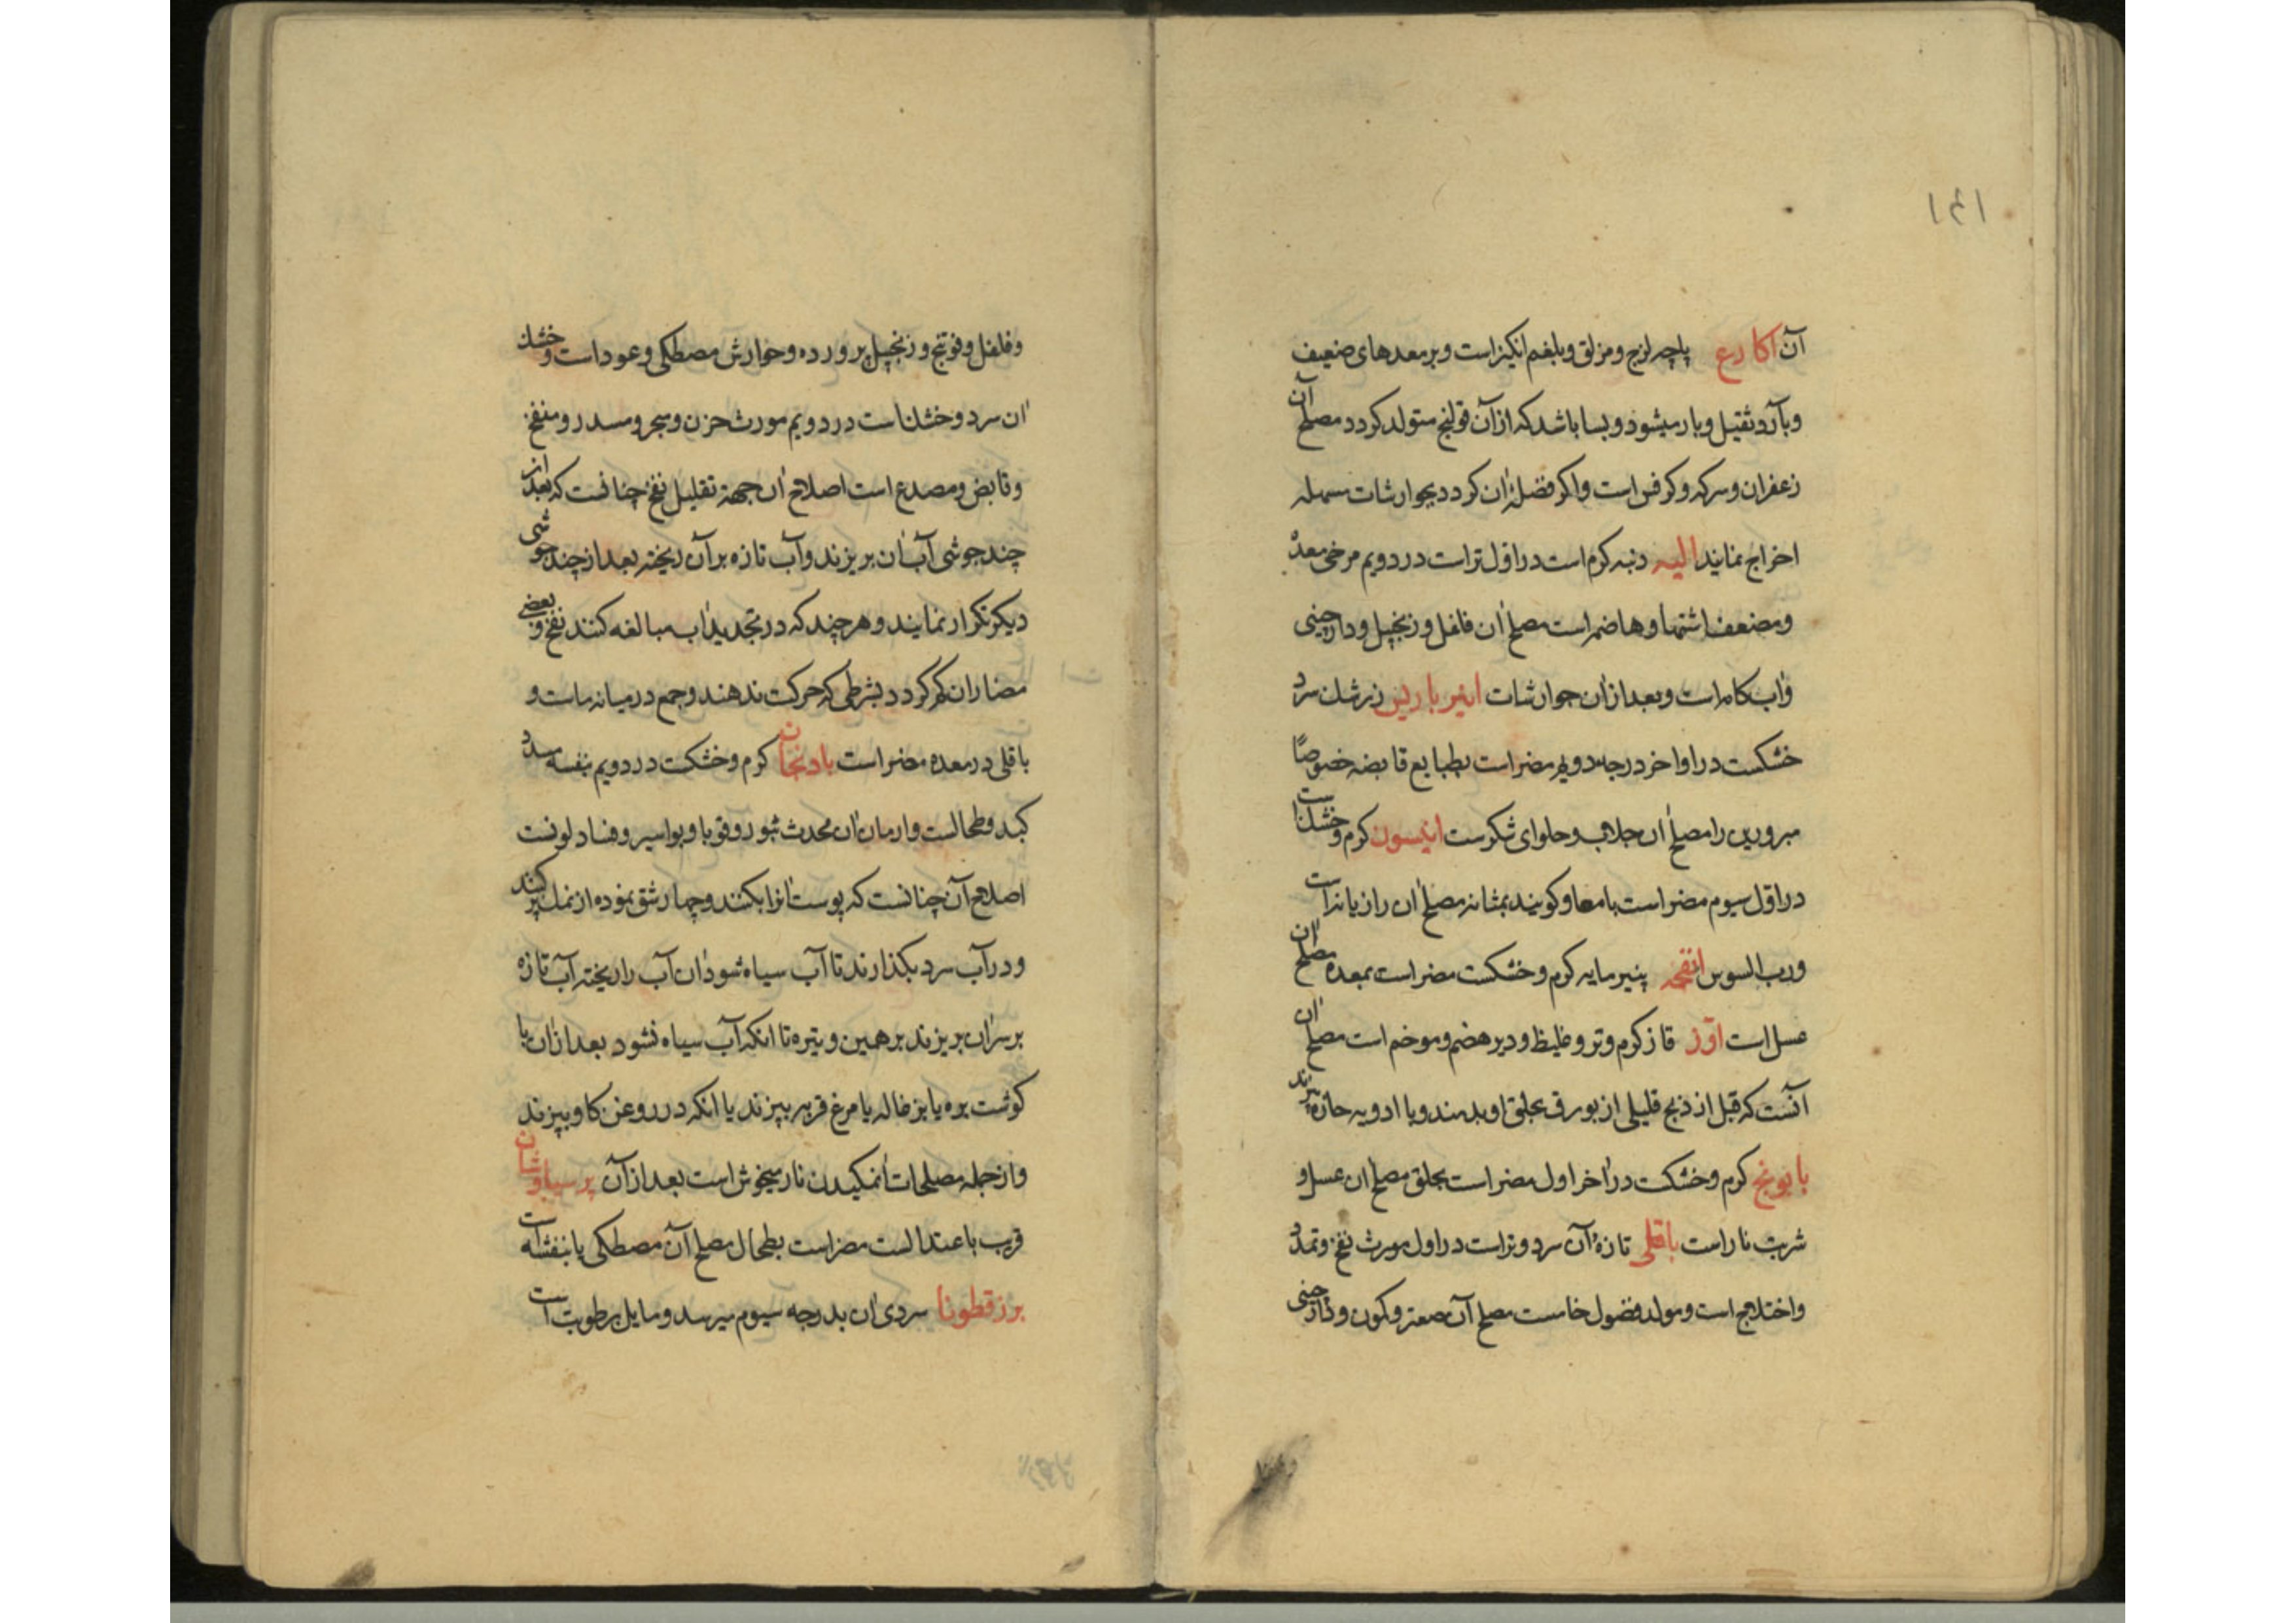 ۱۴۱
آن اکارع پاچه لزج و مزلق و بلغم انکیز است و بر معدهای ضعیف
و بارد ثقیل و بار میشود و بسا باشد که از آن قولنج متولد کردد مصلح آن
زعفران و سرکه و کرفس است و اکر فضلهٔ ان کردد بجوارشات مسهله
اخراج نمایند الیه دنبه کرم است در اول تر است در دویم مرخی معده
و مضعف اشتها و هاضمه است مصلح ان فلفل و زنجبیل و دارچینی
و ابکامه است و بعد از ان جوارشات انبرباریس زرشک سرد
خشکست در اواخر درجه دویم مضر است بطبایع قابضه خصوصًا
مبرودین را مصلح ان جلاب و حلوای شکرست انیسون کرم و خشک است
در اول سیوم مضر است بامعا و کویند بمثانه مصلح ان رازیانه است
و رب السوس انفحه پنیر مایه کرم و خشکست مضر است بمعده مصلح ان
عسل است اوز قاز کرم و تر و غلیظ و دیر هضم و موخم است مصلح ان
آنست که قبل از ذبح قلیلی از بورق بحلق او بدمند و با ادویه حاره بپزند
بابونج کرم و خشکست در آخر اول مضر است بحلق مصلح ان عسل و
شربت نار است باقلی تازهٔ آن سرد و تر است در اول مورث نفخ و تمدد
و اختلاج است و مولد فضول خامست مصلح آن صعتر و کمون و دارچینی
و فلفل و فوتنج و زنجبیل پرورده و جوارش مصطکی و عود است و خشک
ان سرد و خشک است در دویم مورث حزن و سحر و مسدر و منفخ
و قابض و مصدع است اصلاح ان جهة تقلیل نفخ چنانست که بعد از
چند جوشی آب ان بریزند و آب تازه بر آن ریخته بعد از چند جوشی
دیکر تکرار نمایند و هر چند که در تجدید اب مبالغه کنند نفخ و بعضی
مضار ان کم کردد بشرطی که حرکت ندهند و جمع در میانه ماست و
باقلی در معده مضر است بادنجان کرم و خشکست در دویم بنفسه مسدد
کبد و طحالست و ادمان ان محدث بثور و قوبا و بواسیر و فساد لونست
اصلاح آن چنانست که پوست انرا بکنند و چهار شق نموده از نمک پر کنند
و در آب سرد بکذارند تا آب سیاه شود ان آب را ریخته آب تازه
بر سر ان بریزند بر همین وتیره تا انکه آب سیاه نشود بعد از ان با
کوشت بره یا بزغاله یا مرغ فربه بپزند یا انکه در روغن کاو بپزند
و از جمله مصلحات ان مکیدن نار میخوش است بعد از آن پرسیاوشان
قریب باعتدالست مضر است بطحال مصلح آن مصطکی یا بنفشه است
بزرقطونا سردی ان بدرجه سیوم میرسد و مایل برطوبت است